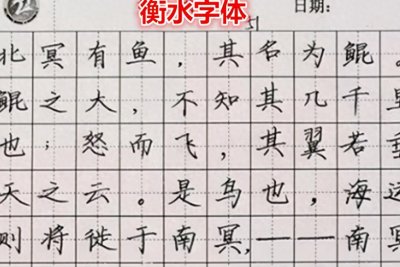 衡水字体
日期：
北冥有鱼，其名为鲲。
鲲之大，不知其几千里
也；怒而飞，其翼若垂
天之云。是鸟也，海运
则将徙于南冥，——南冥